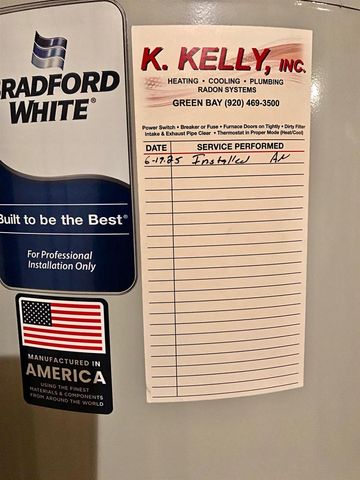 BRADFORD
WHITE®
Built to be the Best®
For Professional
Installation Only
MANUFACTURED IN
AMERICA
USING THE FINEST
MATERIALS & COMPONENTS
FROM AROUND THE WORLD
K. KELLY, INC.
HEATING • COOLING • PLUMBING
RADON SYSTEMS
GREEN BAY (920) 469-3500
Power Switch • Breaker or Fuse • Furnace Doors on Tightly • Dirty Filter
Intake & Exhaust Pipe Clear • Thermostat in Proper Mode (Heat/Cool)
DATE SERVICE PERFORMED
6-19-25 Installed